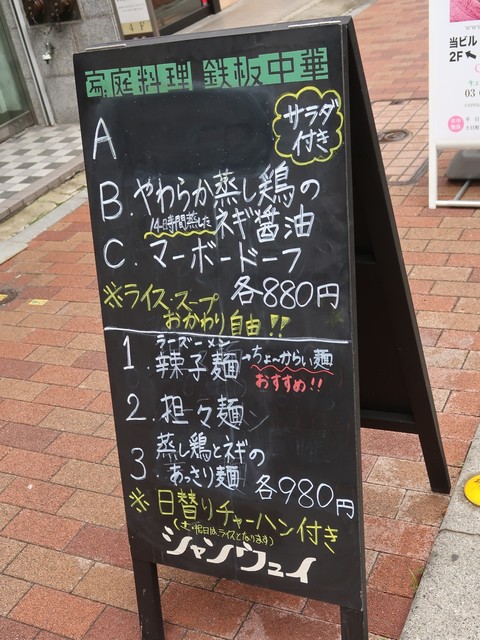 家庭料理 鉄板中華
サラダ
付き
A
B. やわらか蒸し鶏の
14時間蒸した ネギ醤油
C. マーボードーフ
各880円
※ライス・スープ
おかわり自由!!
ラーズーメン
1. 辣子麺→ちょ〜からい麺
おすすめ!!
2. 担々麺
蒸し鶏とネギの
3. あっさり麺 各980円
※日替りチャーハン付き
(土・祝日は、ライスとなります)
シャンウェイ
当ビル
2F
03